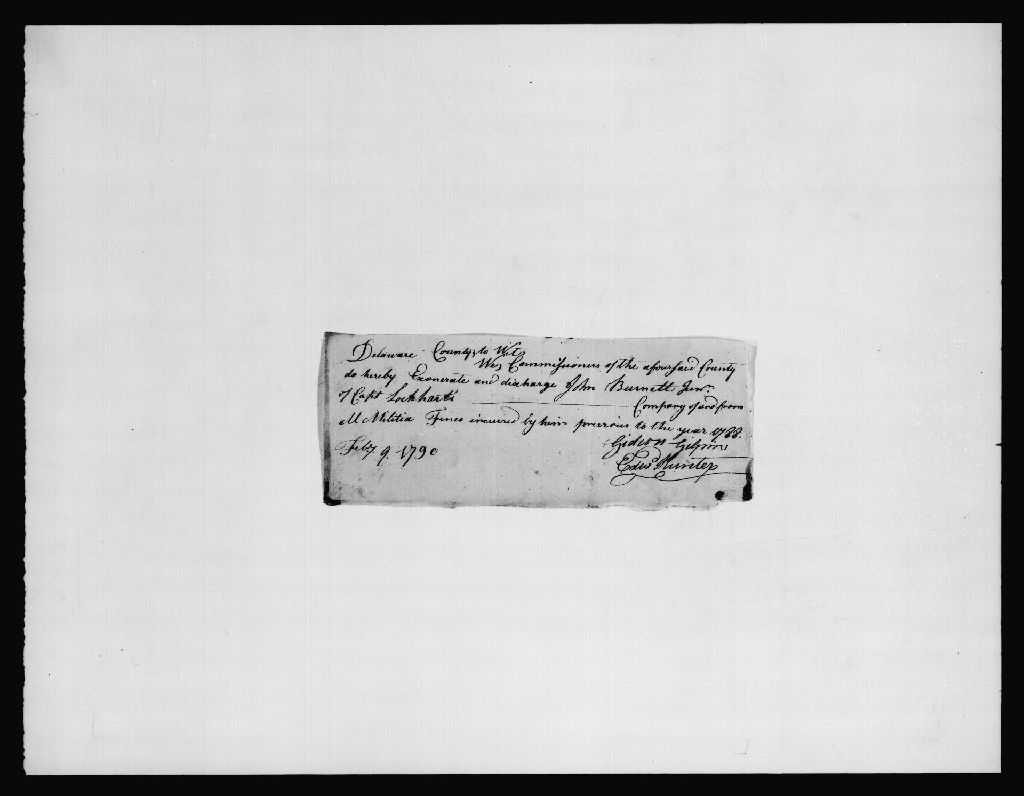 Delaware County, to Wit
We, Commissioners of the afoursaid County
do hereby Exonerate and discharge John Burnett Junr.
of Capt Lockharts Company of and from
all Militia Fines incurred by him previous to the year 1788.
Feby 9 1790
Gideon Gilpin
Edwd Hunter